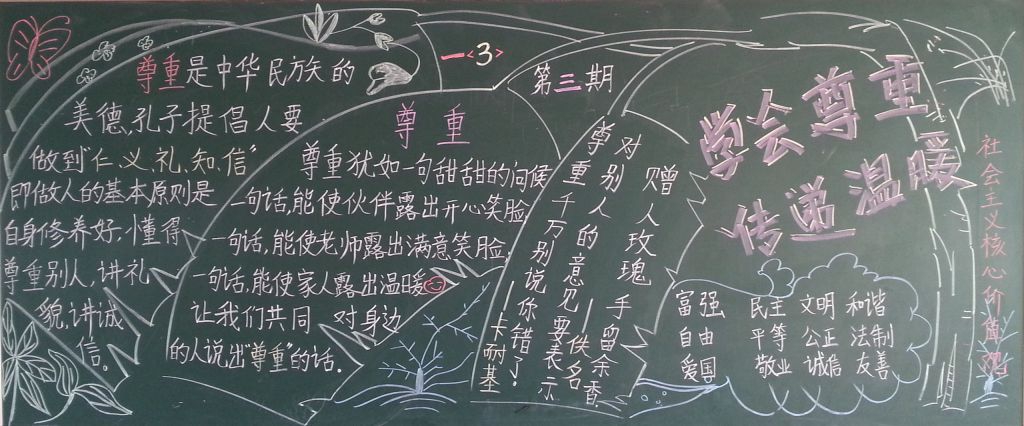 尊重是中华民族的
美德,孔子提倡人要
做到"仁、义、礼、知、信"
即做人的基本原则是
自身修养好,懂得
尊重别人,讲礼
貌,讲诚
信。
一<3>
第三期
尊重
尊重犹如一句甜甜的问候
一句话,能使伙伴露出开心笑脸
一句话,能使老师露出满意笑脸,
一句话,能使家人露出温暖
让我们共同 对身边
的人说出"尊重"的话.
对别人的意见要表示
尊重千万别说"你错了"
—卡耐基
赠人玫瑰 手留余香
—佚名
学会尊重
传递温暖
富强 民主 文明 和谐
自由 平等 公正 法制
爱国 敬业 诚信 友善
社会主义核心价值观